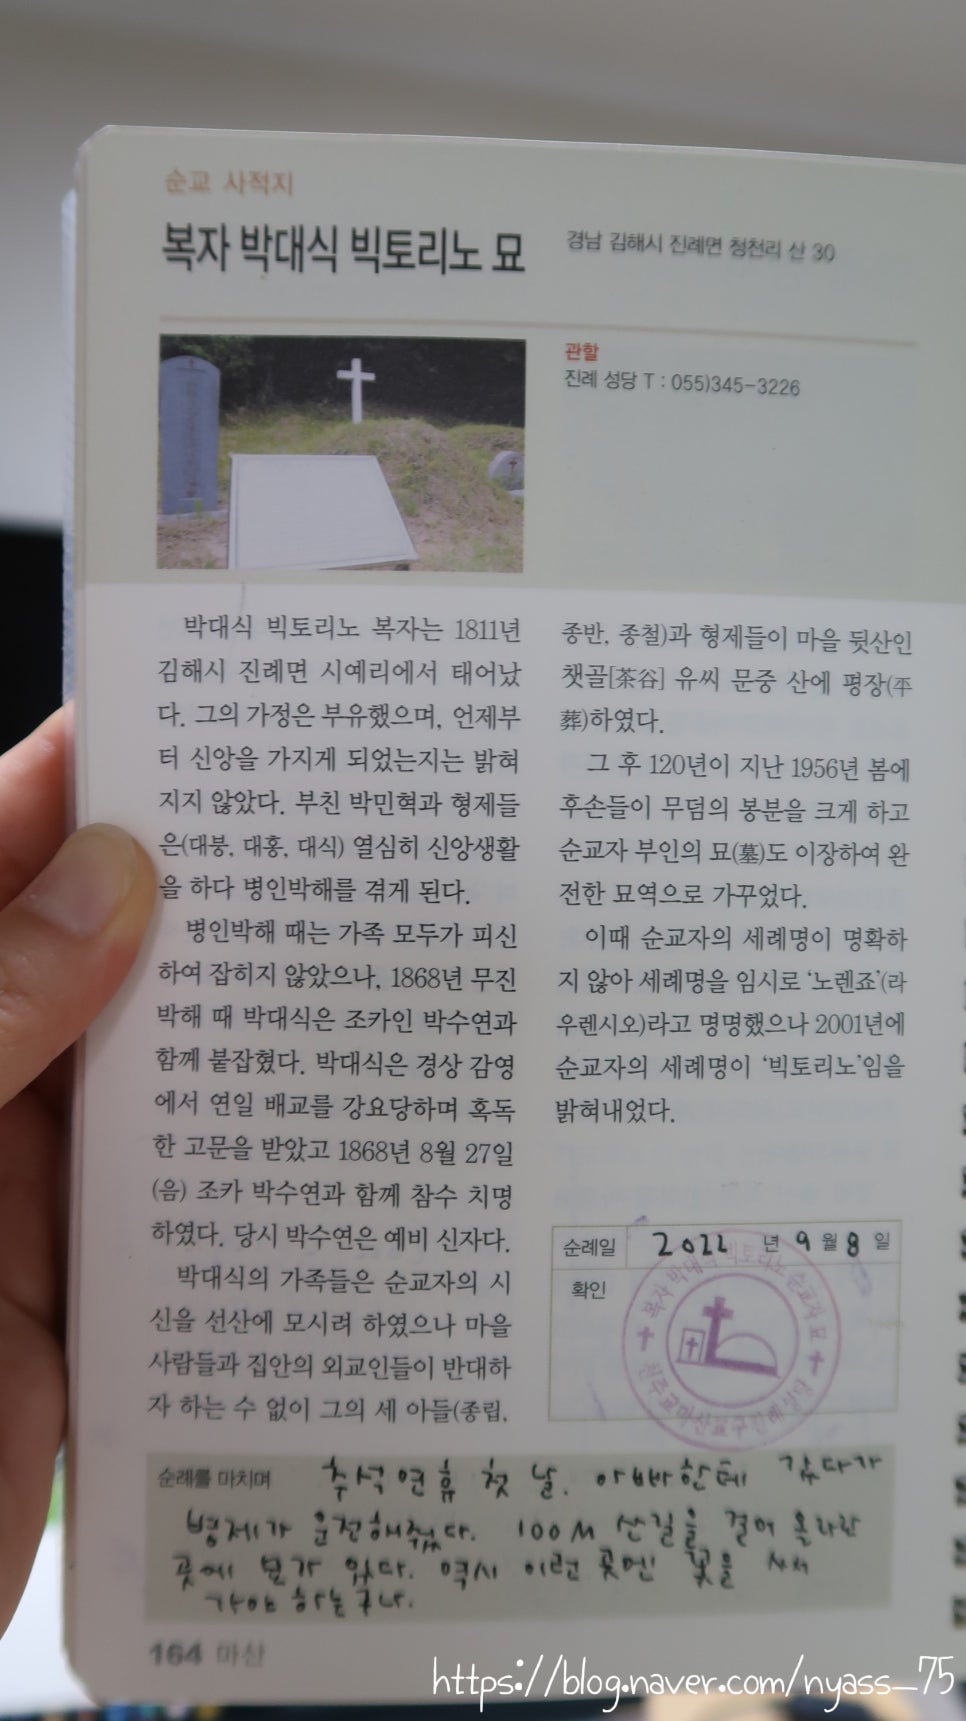 순교 사적지
복자 박대식 빅토리노 묘
경남 김해시 진례면 청천리 산 30
관할
진례 성당 T : 055)345-3226
박대식 빅토리노 복자는 1811년
김해시 진례면 시예리에서 태어났
다. 그의 가정은 부유했으며, 언제부
터 신앙을 가지게 되었는지는 밝혀
지지 않았다. 부친 박민혁과 형제들
은(대붕, 대홍, 대식) 열심히 신앙생활
을 하다 병인박해를 겪게 된다.
병인박해 때는 가족 모두가 피신
하여 잡히지 않았으나, 1868년 무진
박해 때 박대식은 조카인 박수연과
함께 붙잡혔다. 박대식은 경상 감영
에서 연일 배교를 강요당하며 혹독
한 고문을 받았고 1868년 8월 27일
(음) 조카 박수연과 함께 참수 치명
하였다. 당시 박수연은 예비 신자다.
박대식의 가족들은 순교자의 시
신을 선산에 모시려 하였으나 마을
사람들과 집안의 외교인들이 반대하
자 하는 수 없이 그의 세 아들(종립,
종반, 종철)과 형제들이 마을 뒷산인
챗골[茶谷] 유씨 문중 산에 평장(平
葬)하였다.
그 후 120년이 지난 1956년 봄에
후손들이 무덤의 봉분을 크게 하고
순교자 부인의 묘(墓)도 이장하여 완
전한 묘역으로 가꾸었다.
이때 순교자의 세례명이 명확하
지 않아 세례명을 임시로 '노렌죠'(라
우렌시오)라고 명명했으나 2001년에
순교자의 세례명이 '빅토리노'임을
밝혀내었다.
순례일 2022 년 9 월 8 일
확인
복자 박대식 빅토리노 순교자 묘
천주교마산교구진례성당
순례를 마치며 추석연휴 첫 날. 아빠한테 갔다가
병제가 운전해줬다. 100M 산길을 걸어 올라간
곳에 묘가 있다. 역시 이런 곳엔 꽃을 사서
가야 하는구나.
164 마산
https://blog.naver.com/nyass_75